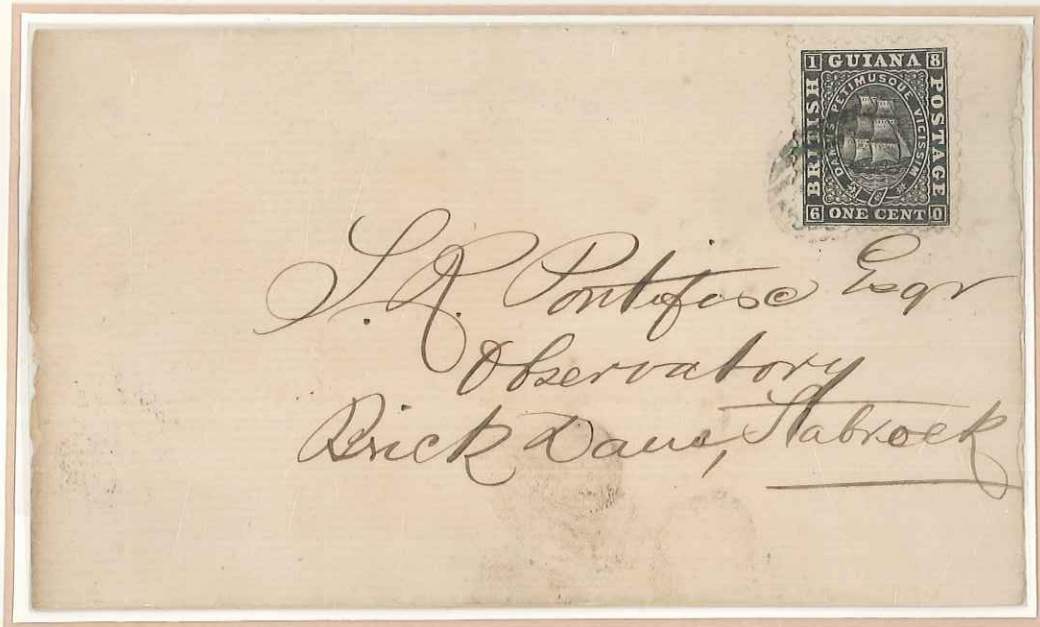 1 GUIANA 8
BRITISH
POSTAGE
DAMUS PETIMUSQUE VICISSIM
6 ONE CENT 0
S. R. Pontifex Esqr
Observatory
Brick Dam, Stabroek